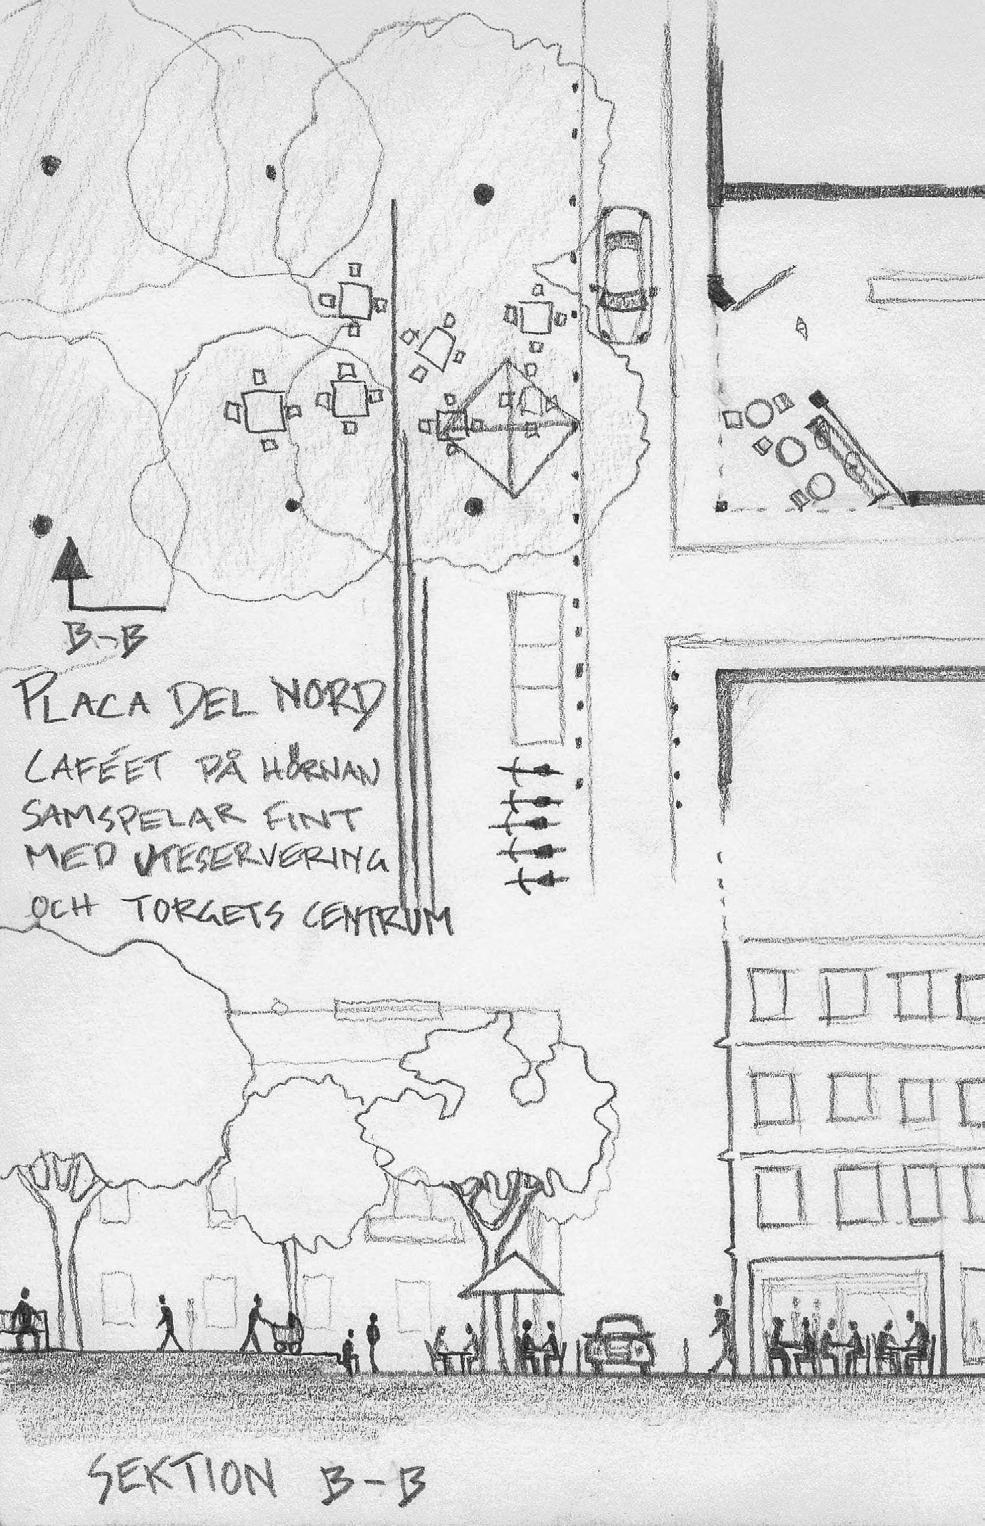 B-B
PLACA DEL NORD
CAFÉET PÅ HÖRNAN
SAMSPELAR FINT
MED UTESERVERING
OCH TORGETS CENTRUM
SEKTION B-B